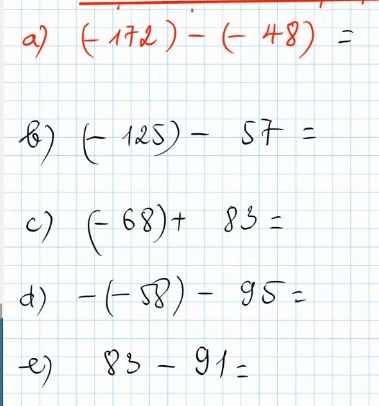 a) (-172) - (- 48) =
b) (- 125) - 57 =
c) (- 68) + 83 =
d) -(-58) - 95 =
e) 83 - 91 =